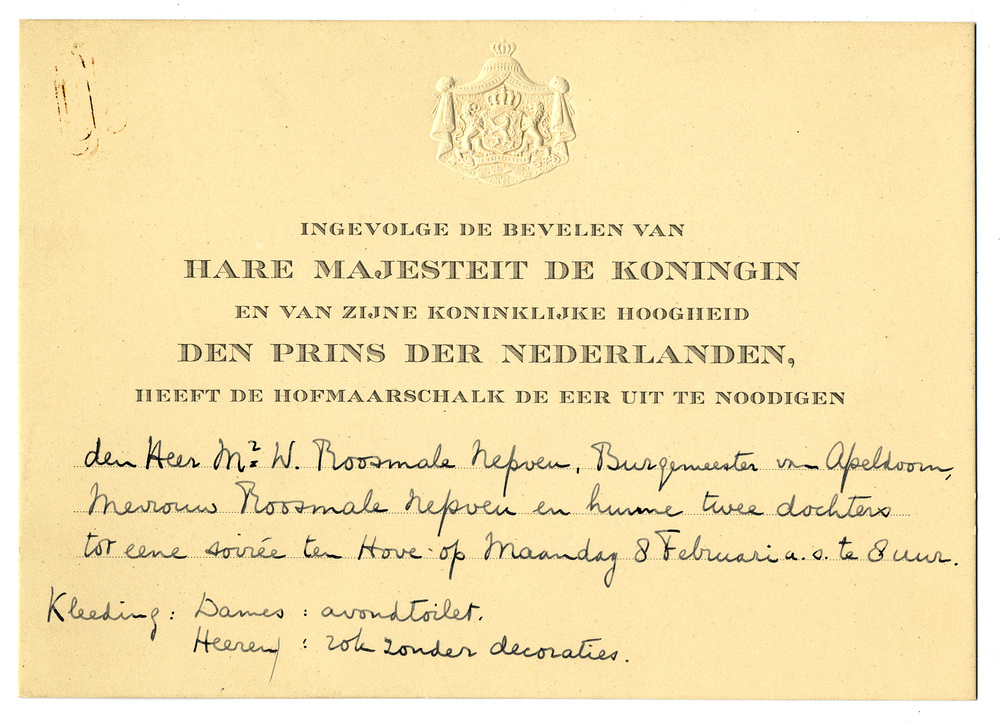 INGEVOLGE DE BEVELEN VAN
HARE MAJESTEIT DE KONINGIN
EN VAN ZIJNE KONINKLIJKE HOOGHEID
DEN PRINS DER NEDERLANDEN,
HEEFT DE HOFMAARSCHALK DE EER UIT TE NOODIGEN
den Heer Mr. W. Roosmale Nepveu, Burgemeester van Apeldoorn,
Mevrouw Roosmale Nepveu en hunne twee dochters
tot eene soirée ten Hove op Maandag 8 Februari a.s. te 8 uur.
Kleeding: Dames: avondtoilet.
Heeren: rok zonder decoraties.